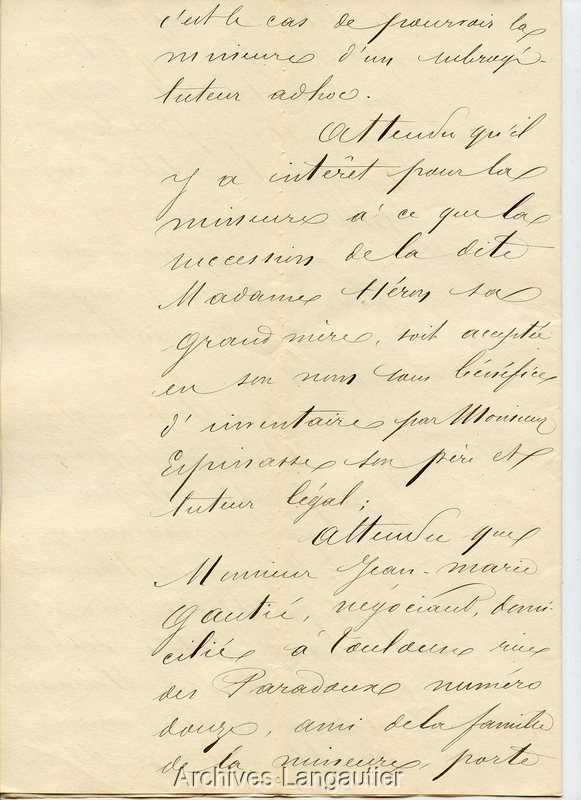 c'est le cas de pourvoir la
mineure d'un subrogé-
tuteur adhoc.
Attendu qu'il
y a intérêt pour la
mineure à ce que la
succession de la dite
Madame Héron sa
grand mère, soit acceptée
en son nom sous bénéfice
d'inventaire par Monsieur
Espinasse son père et
tuteur légal;
Attendu que
Monsieur Jean-marie
Gautié, négociant, domi-
cilié à Toulouse rue
des Paradoux numéro
douze, ami de la famille
de la mineure, porte
Archives Langautier